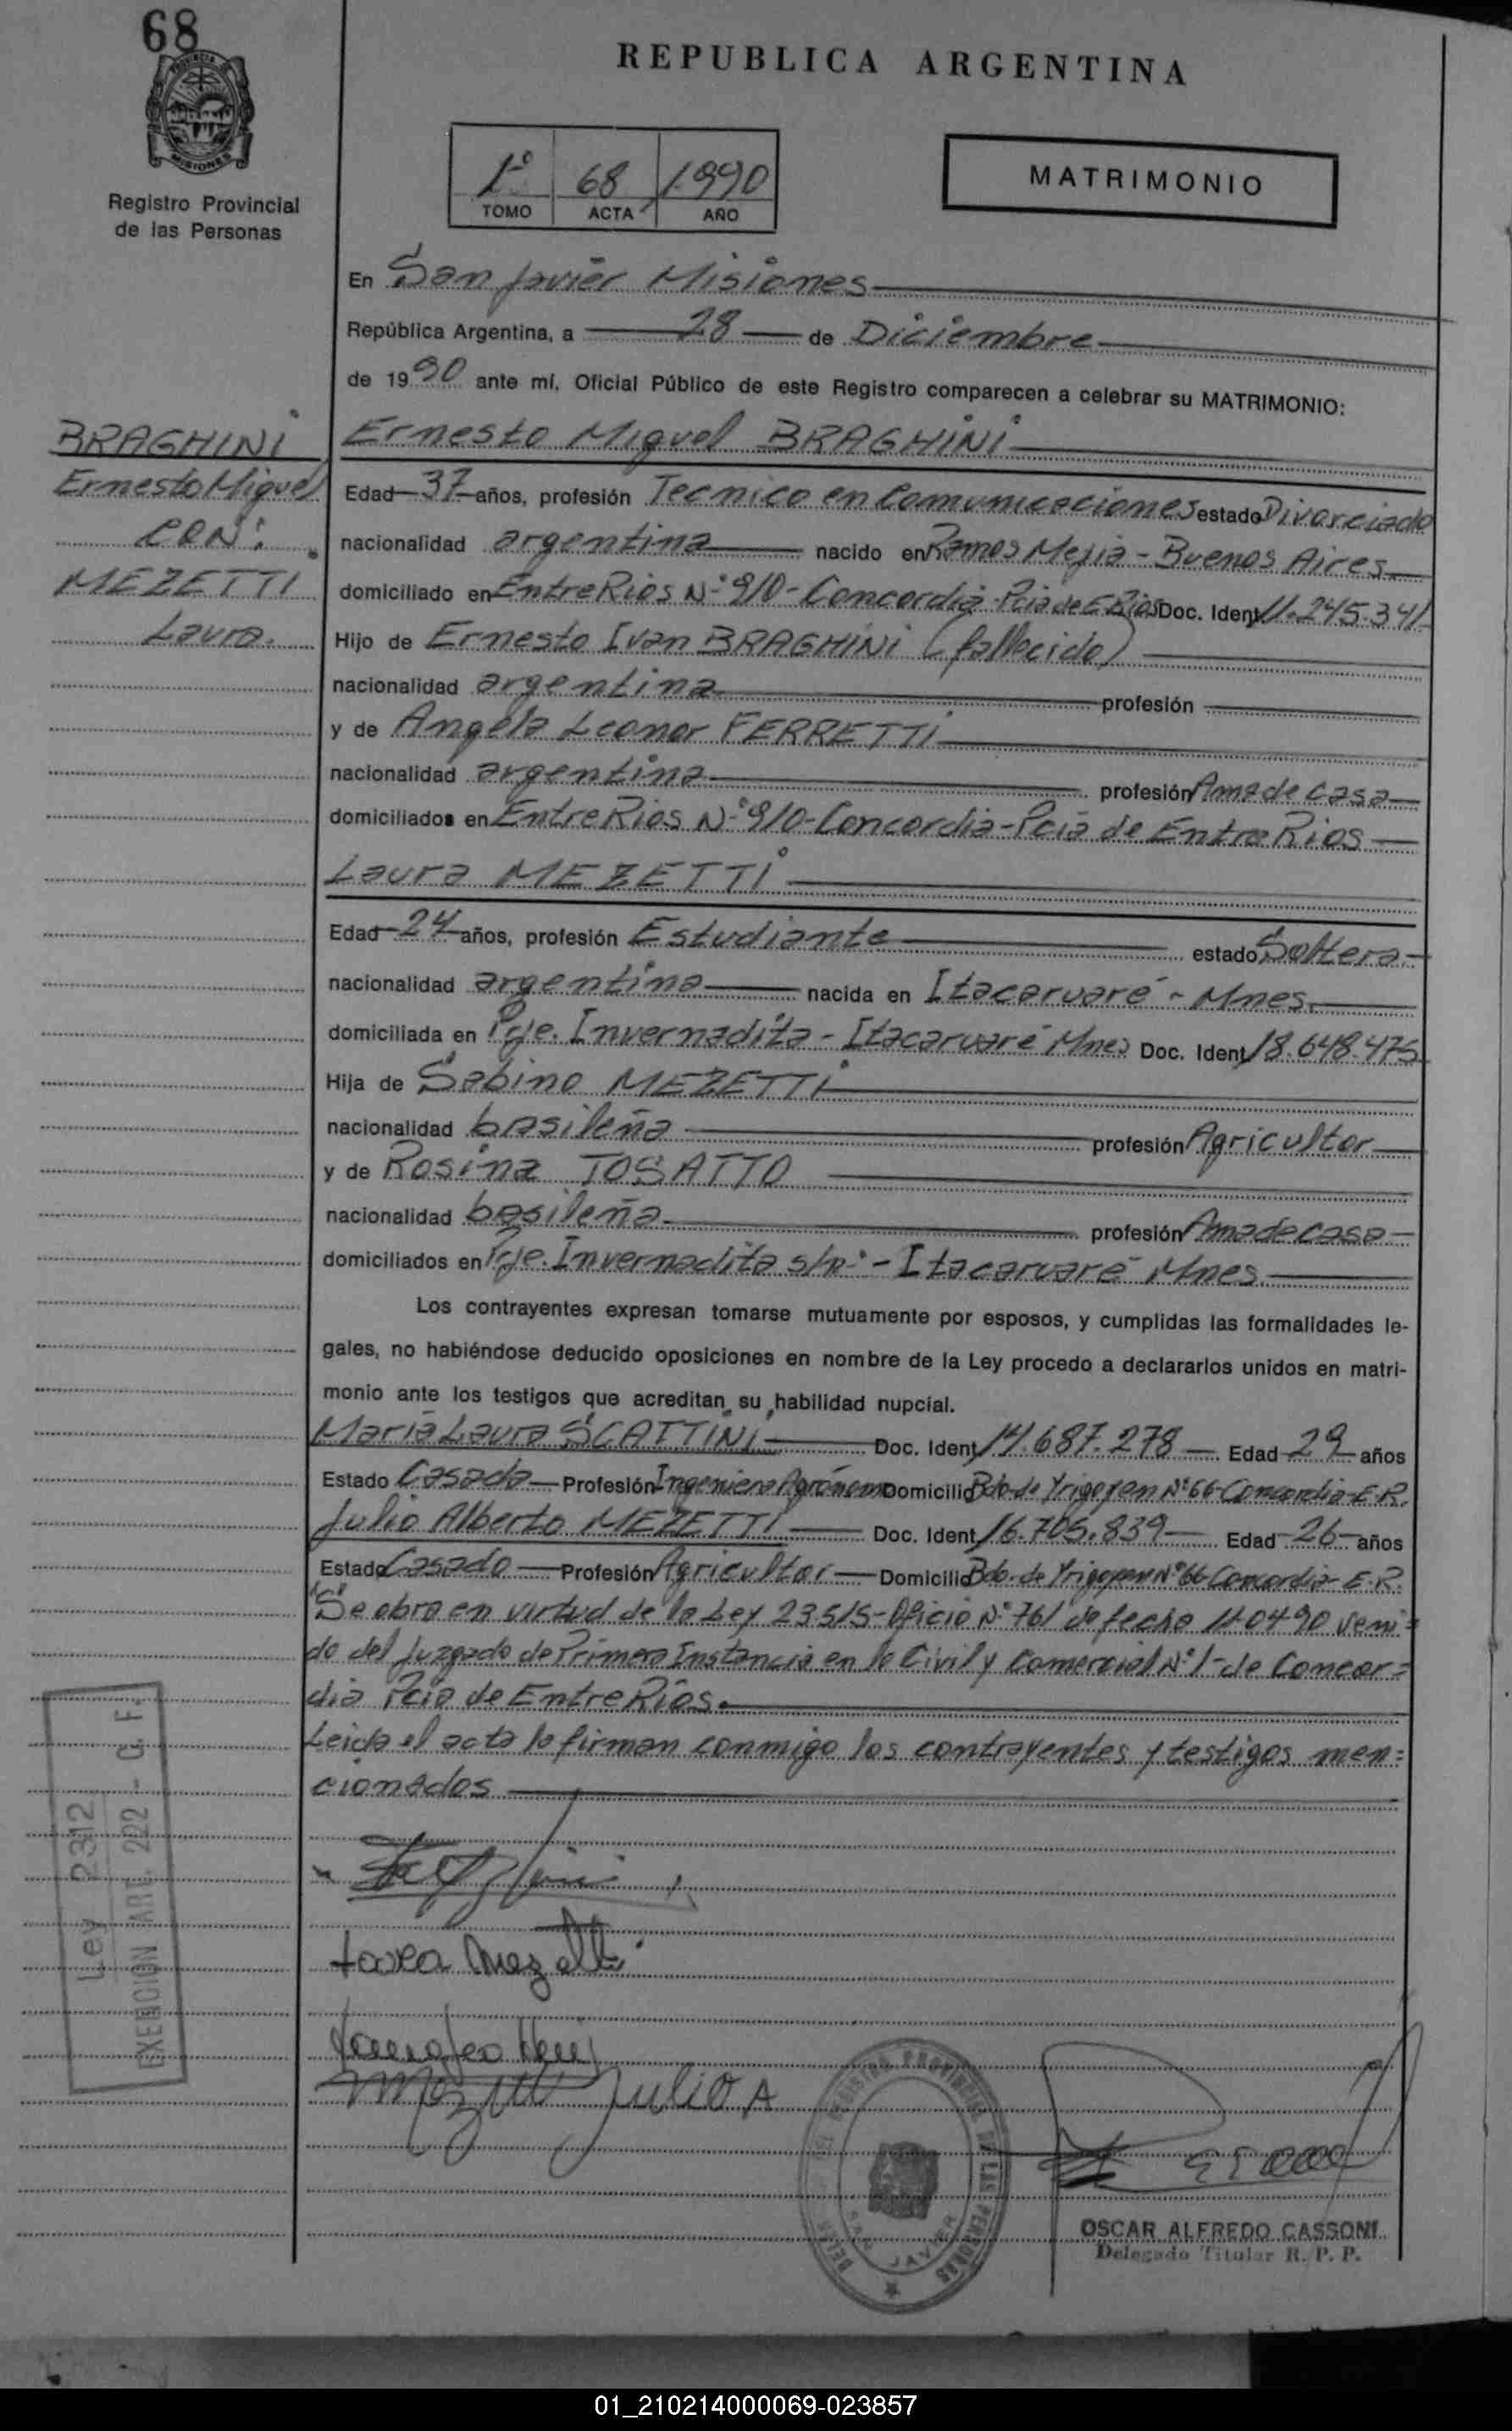 68
REPUBLICA ARGENTINA
PROVINCIA
MISIONES
Registro Provincial
de las Personas
1º 68 1990
TOMO ACTA AÑO
MATRIMONIO
En San Javier Misiones
República Argentina, a 28 de Diciembre
de 1990 ante mí, Oficial Público de este Registro comparecen a celebrar su MATRIMONIO:
BRAGHINI
Ernesto Miguel
CON:
MEZETTI
Laura.
Ernesto Miguel BRAGHINI
Edad 37 años, profesión Tecnico en Comunicaciones estado Divorciado
nacionalidad argentina nacido en Ramos Mejia - Buenos Aires
domiciliado en Entre Rios Nº 910 - Concordia Pcia de E Rios Doc. Ident. 11.245.341
Hijo de Ernesto Ivan BRAGHINI (fallecido)
nacionalidad argentina profesión
y de Angela Leonor FERRETTI
nacionalidad argentina profesión Ama de casa
domiciliados en Entre Rios Nº 910 - Concordia - Pcia de Entre Rios
Laura MEZETTI
Edad 24 años, profesión Estudiante estado Soltera
nacionalidad argentina nacida en Itacaruaré - Mnes.
domiciliada en Pje. Invernadita - Itacaruaré Mnes Doc. Ident. 18.648.475
Hija de Sabino MEZETTI
nacionalidad brasileña profesión Agricultor
y de Rosina TOSATTO
nacionalidad brasileña profesión Ama de casa
domiciliados en Pje. Invernadita s/nº - Itacaruaré Mnes
Los contrayentes expresan tomarse mutuamente por esposos, y cumplidas las formalidades le-
gales, no habiéndose deducido oposiciones en nombre de la Ley procedo a declararlos unidos en matri-
monio ante los testigos que acreditan su habilidad nupcial.
Maria Laura SCATTINI Doc. Ident. 14.687.278 Edad 29 años
Estado Casada Profesión Ingeniera Agrónoma Domicilio Bdo de Yrigoyen Nº 66 Concordia - E.R.
Julio Alberto MEZETTI Doc. Ident. 16.705.839 Edad 26 años
Estado Casado Profesión Agricultor Domicilio Bdo. de Yrigoyen Nº 66 Concordia E.R.
Se obra en virtud de la Ley 23.515 - Oficio Nº 761 de fecha 11-04-90 veni=
do del Juzgado de Primera Instancia en lo Civil y Comercial Nº 1 - de Concor=
dia Pcia de Entre Rios.
Leida el acta la firman conmigo los contrayentes y testigos men=
cionados
Ley 2312
EXENCION ART. 222 - C. F.
Laura Mezetti
Mezetti Julio A
REGISTRO PROVINCIAL DE LAS PERSONAS
SAN JAVIER
OSCAR ALFREDO CASSONI
Delegado Titular R. P. P.
01_210214000069-023857